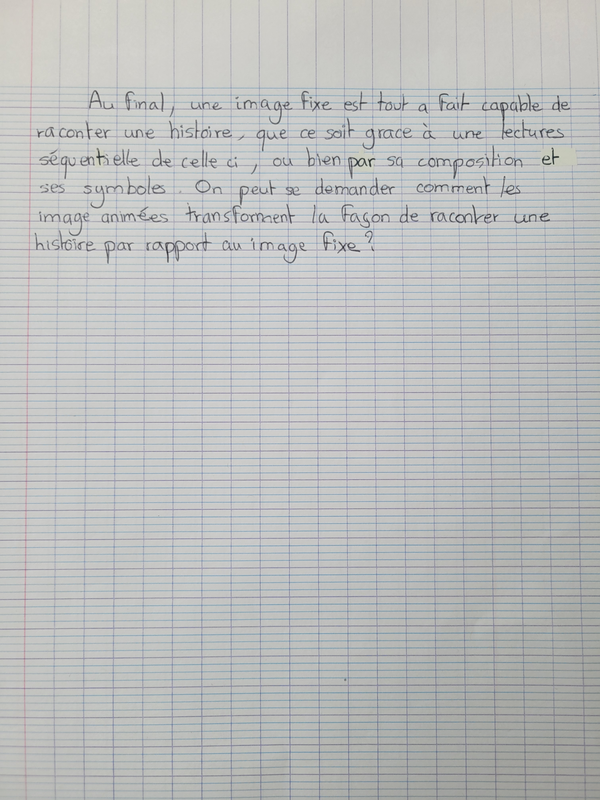 Au final, une image fixe est tout a fait capable de
raconter une histoire, que ce soit grace à une lectures
séquentielle de celle ci, ou bien par sa composition et
ses symboles. On peut se demander comment les
image animées transforment la façon de raconter une
histoire par rapport au image fixe?